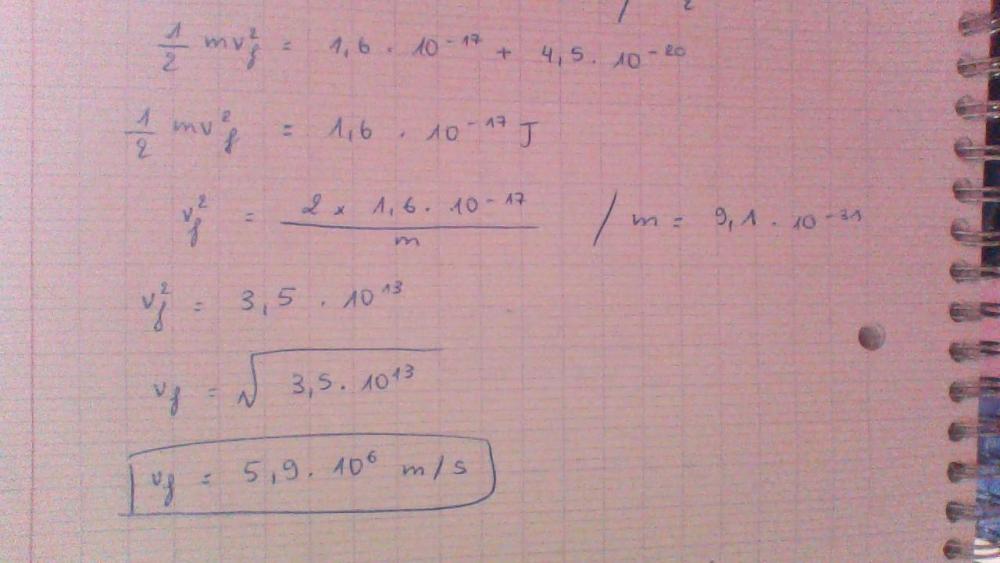 1/2 mv_f² = 1,6 · 10⁻¹⁷ + 4,5 · 10⁻²⁰
1/2 mv_f² = 1,6 · 10⁻¹⁷ J
v_f² = (2 × 1,6 · 10⁻¹⁷)/m / m = 9,1 · 10⁻³¹
v_f² = 3,5 · 10¹³
v_f = √(3,5 · 10¹³)
v_f = 5,9 · 10⁶ m/s